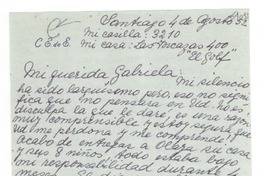 Santiago 4 de Agosto 52
Mi casilla: 3210
C E. u E. Mi casa: Las Ñcazas 400
"El Golf"
Mi querida Gabriela: Mi silencio
ha sido larguísimo pero, eso no signi
fica que no pensara en Ud. La
disculpa que le daré, es una razón
muy comprensible y estoy segura, que
Ud me perdona y me comprende.
acabo de entregar a Olaya su casa
y sus 8 niños, todo estaba bajo
mi responsabilidad durante 4